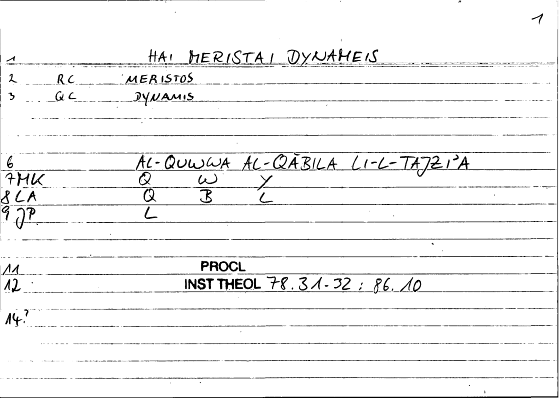 1
1 HAI MERISTAI DYNAMEIS
2 RC MERISTOS
3 QC DYNAMIS
6 AL-QUWWA AL-QĀBILA LI-L-TAJZI'A
7 MK Q W Y
8 LA Q B L
9 JP L
11 PROCL
12 INST THEOL 78.31-32 ; 86.10
14.?